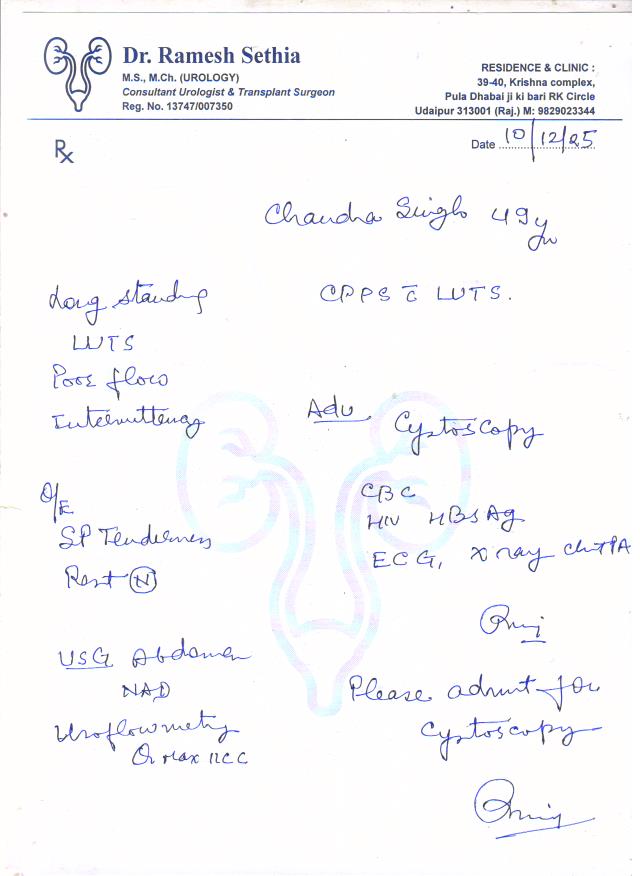 Dr. Ramesh Sethia
M.S., M.Ch. (UROLOGY)
Consultant Urologist & Transplant Surgeon
Reg. No. 13747/007350
RESIDENCE & CLINIC :
39-40, Krishna complex,
Pula Dhabai ji ki bari RK Circle
Udaipur 313001 (Raj.) M: 9829023344
Rx
Date 10/12/25
Chandra Singh 49y
Long standing
LUTS
Poor flow
Intermittency
CPPS c̄ LUTS.
Adv Cystoscopy
CBC
HIV HBsAg
ECG, X ray chest PA
O/E
SP Tenderness
Rest N
USG Abdomen
NAD
Uroflowmetry
Q max 11CC
Please admit for
Cystoscopy